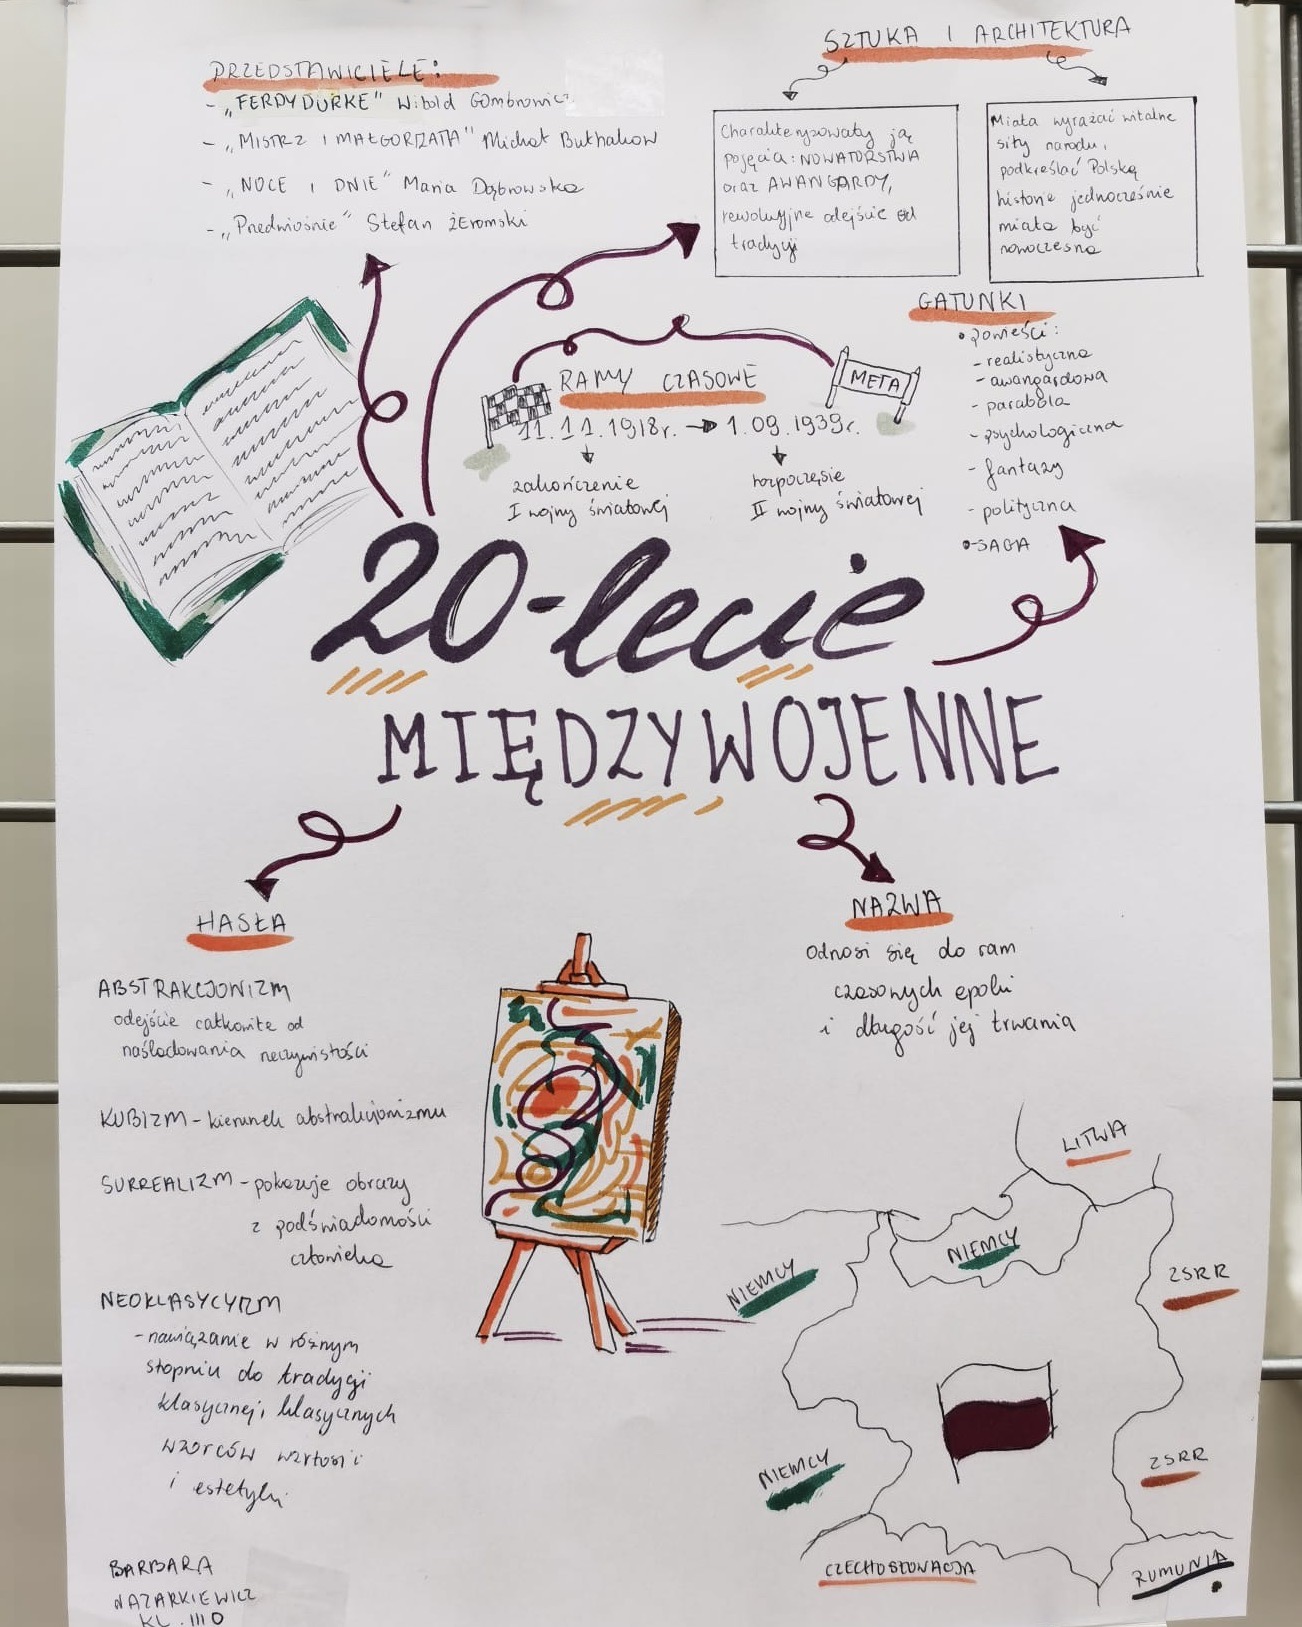 PRZEDSTAWICIELE:
- „FERDYDURKE" Witold Gombrowicz
- „MISTRZ I MAŁGORZATA" Michał Bułhakow
- „NOCE I DNIE" Maria Dąbrowska
- „Przedwiośnie" Stefan Żeromski
SZTUKA I ARCHITEKTURA
Charakteryzowały ją
pojęcia: NOWATORSTWA
oraz AWANGARDY,
rewolucyjne odejście od
tradycji
Miała wyrażać witalne
siły narodu,
podkreślać Polską
historię jednocześnie
miała być
nowoczesna
GATUNKI
• powieści:
- realistyczna
- awangardowa
- parabola
- psychologiczna
- fantazy
- polityczna
• SAGA
RAMY CZASOWE
META
11.11.1918r. → 1.09.1939r.
zakończenie
I wojny światowej
rozpoczęsie
II wojny światowej
20-lecie
MIĘDZYWOJENNE
HASŁA
ABSTRAKCJONIZM
odejście całkowite od
naśladowania rzeczywistości
KUBIZM - kierunek abstrakcjonizmu
SURREALIZM - pokazuje obrazy
z podświadomości
człowieka
NEOKLASYCYZM
- nawiązanie w różnym
stopniu do tradycji
klasycznej, klasycznych
wzorców wartości
i estetyki
NAZWA
Odnosi się do ram
czasowych epoki
i długość jej trwania
LITWA
NIEMCY
NIEMCY
ZSRR
NIEMCY
ZSRR
CZECHOSŁOWACJA
RUMUNIA
BARBARA
NAZARKIEWICZ
KL. III D